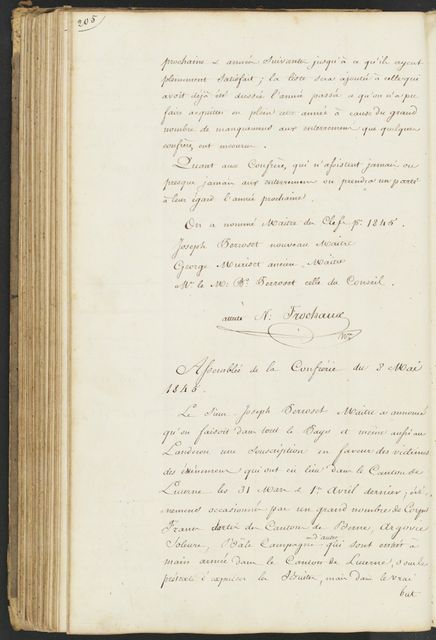 205
prochaine & année suivante jusqu'à ce qu'ils ayent
pleinement satisfait; la liste sera ajoutée à celle qui
avoit déjà été dressée l'année passée & qu'on n'a pu
faire acquitter en plein cette année à cause du grand
nombre de manquemens aux enterremens que quelques
confrères ont encouru.
Quant aux Confrères, qui n'assistent jamais ou
presque jamais aux enterremens on prendra un parti
à leur égard l'année prochaine.
On a nommé Maître des Clefs pr. 1845.
Joseph Perroset nouveau Maître
George Muriset ancien Maître
Mr. le M: Bs. Perroset celle du Conseil.
atteste N: Frochaux
Assemblée de la Confrérie du 3 Mai
1845.
Le Sieur Joseph Perroset Maître a annoncé
qu'on faisoit dans tout le Pays et même aussi au
Landeron une Souscription en faveur des victimes
des évènemens qui ont eu lieu dans le Canton de
Lucerne les 31 Mars & 1er. Avril dernier; évè-
nemens occasionnés par un grand nombre de Corps
Francs des Cantons de Berne, Argovie
Soleure, Bâle Campagne and autres qui sont entrés à
main armée dans le Canton de Lucerne, sous le
prétexte d'expulser les Jésuites, mais dans le vrai
but